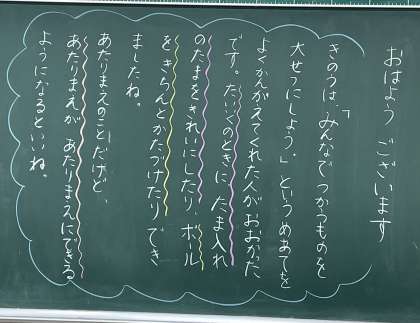 おはよう ございます
きのうは、「みんなでつかうものを
大せつにしよう。」というめあてを
よくかんがえてくれた人がおおかった
です。たいくのときに たま入れ
のたまをきれいにしたり、ボール
を きちんとかたづけたり でき
ましたね。
あたりまえのことだけど、
あたりまえが あたりまえにできる
ようになるといいね。